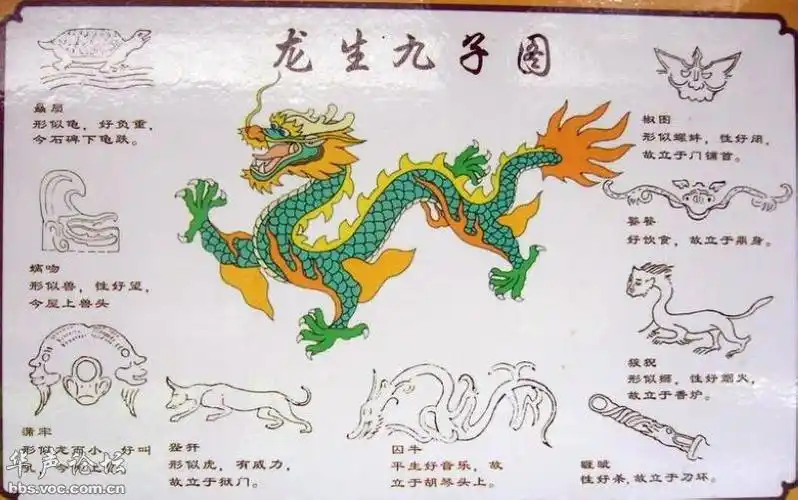 龙生九子图
赑屃
形似龟，好负重，
今石碑下龟趺。
螭吻
形似兽，性好望，
今屋上兽头
蒲牢
形似龙而小，好叫
吼，今
狴犴
形似虎，有威力，
故立于狱门。
囚牛
平生好音乐，故
立于胡琴头上。
睚眦
性好杀，故立于刀环。
狻猊
形似狮，性好烟火，
故立于香炉。
饕餮
好饮食，故立于鼎身。
椒图
形似螺蚌，性好闭，
故立于门铺首。
华声论坛
bbs.voc.com.cn